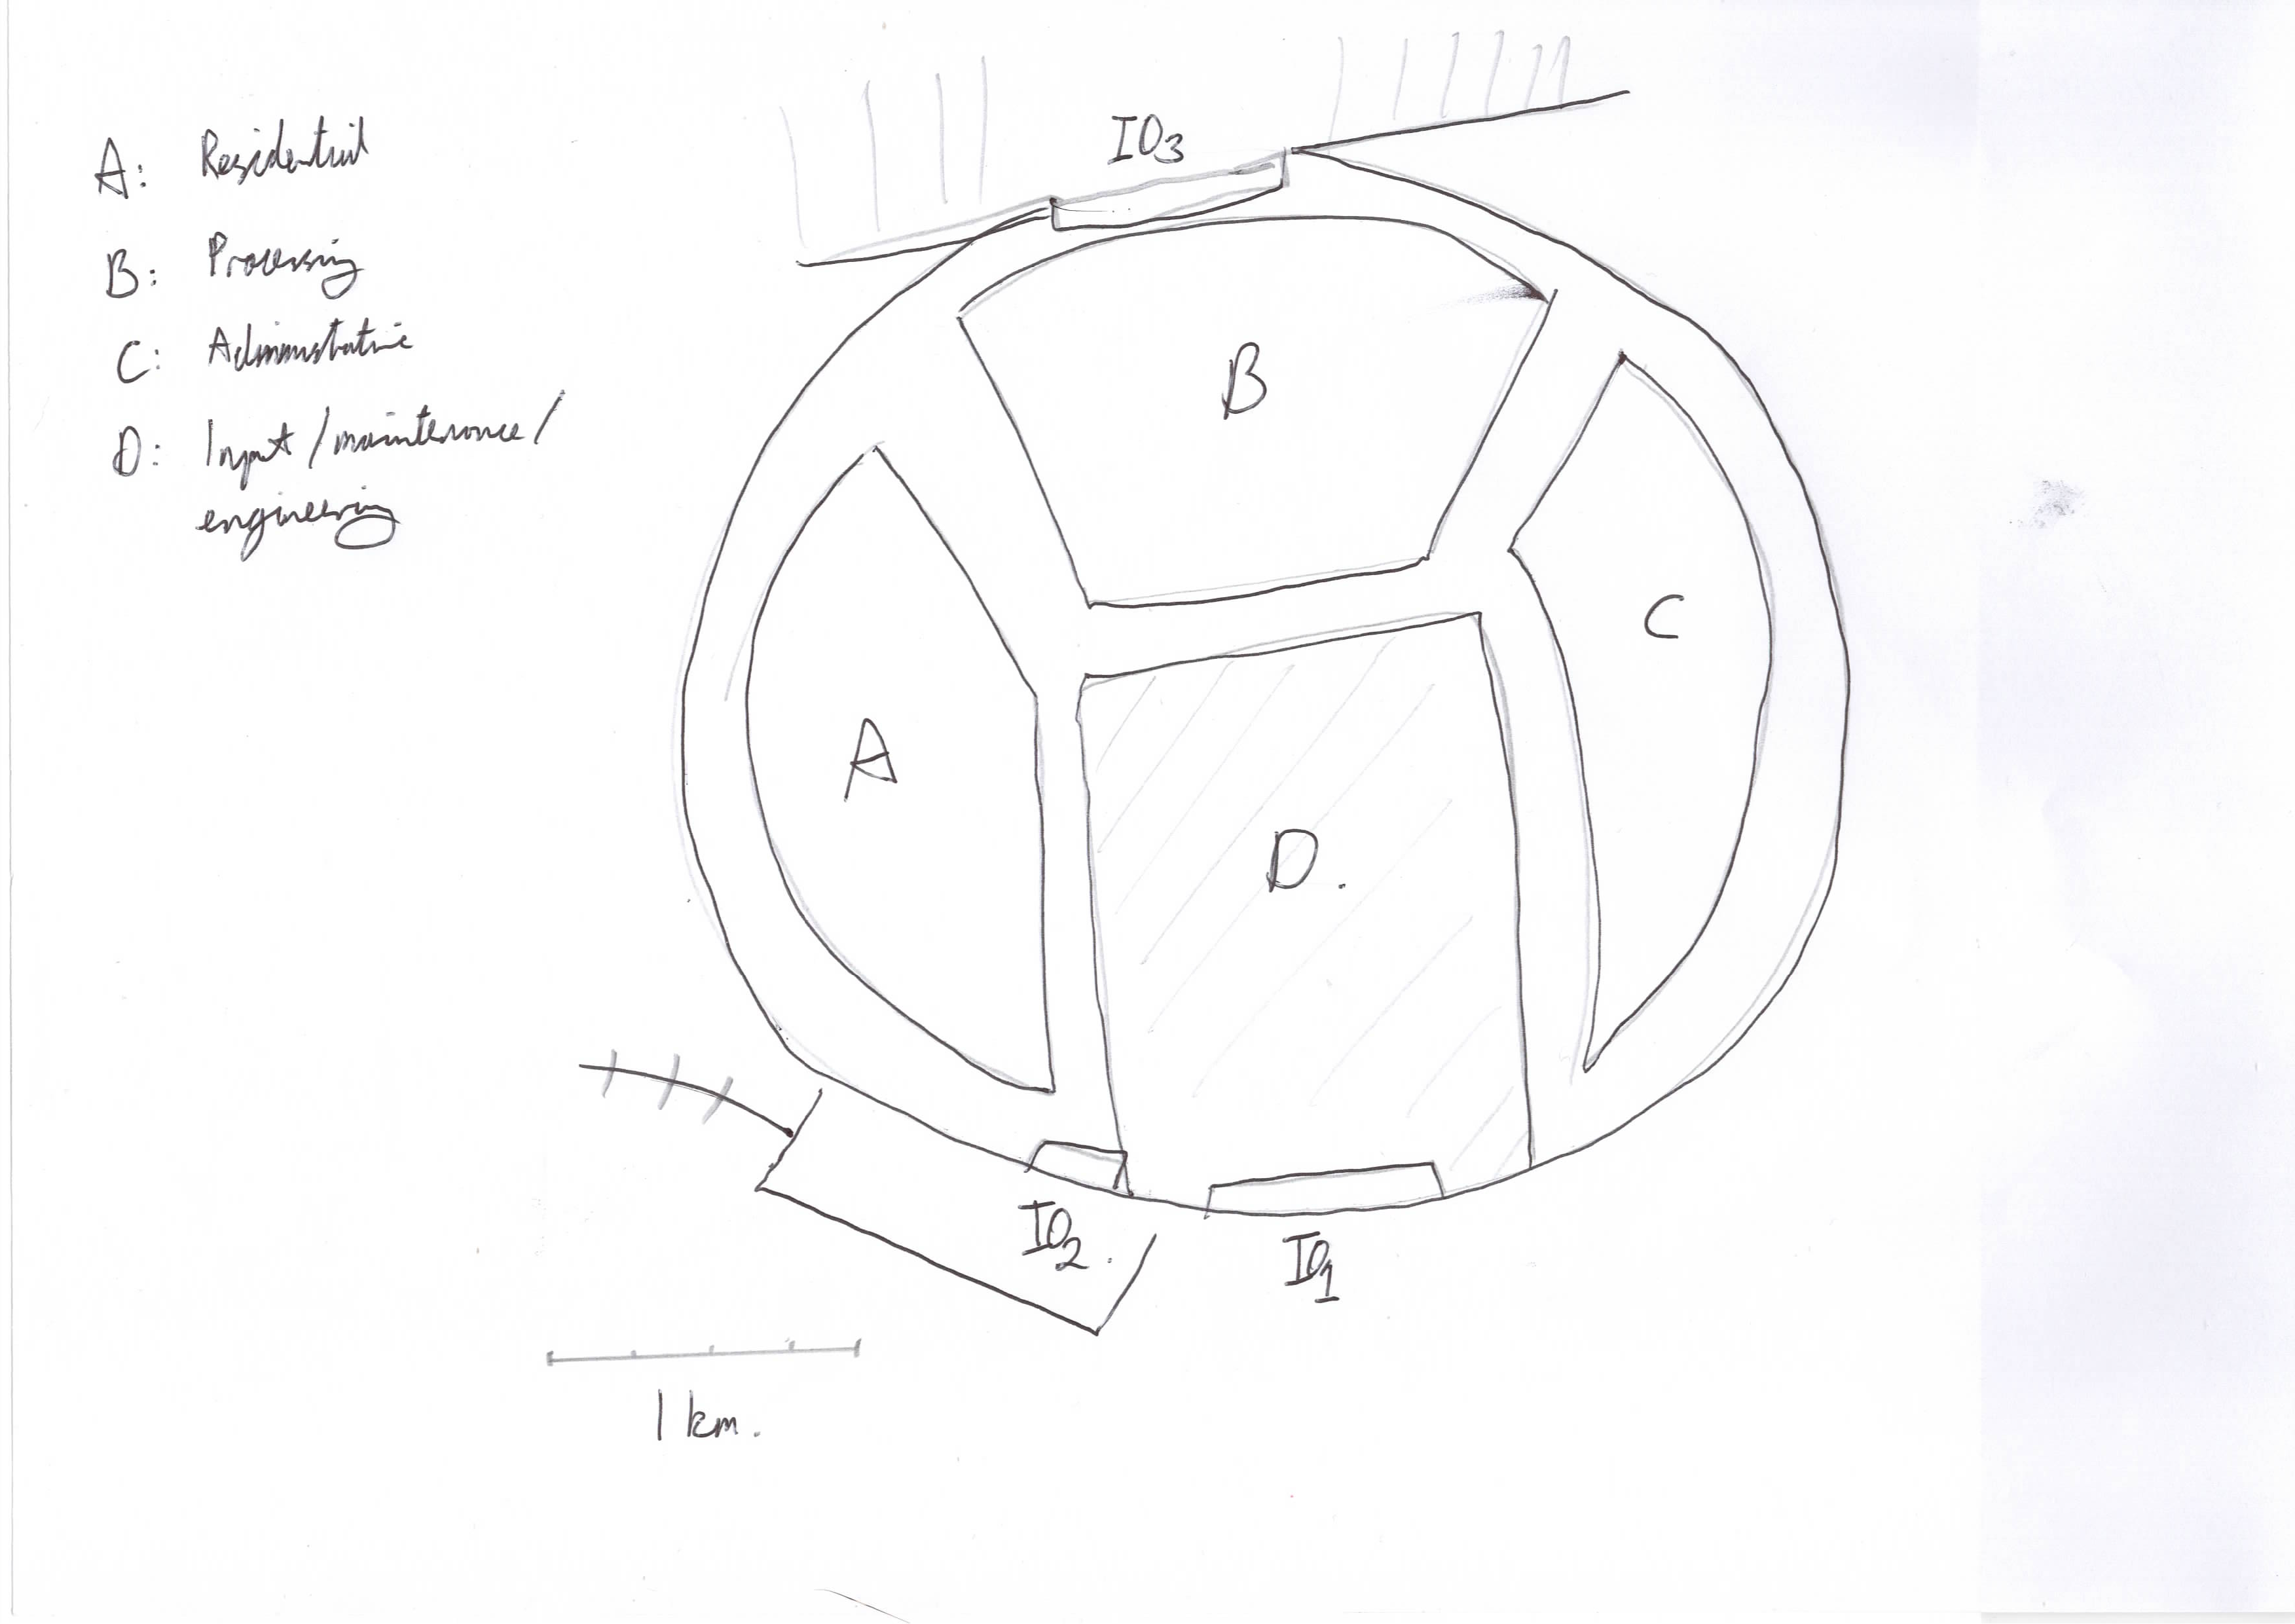 A: Residential
B: Processing
C: Administrative
D: Input/maintenance/
engineering
IO3
B
C
A
D.
IO2.
IO1
1 km.